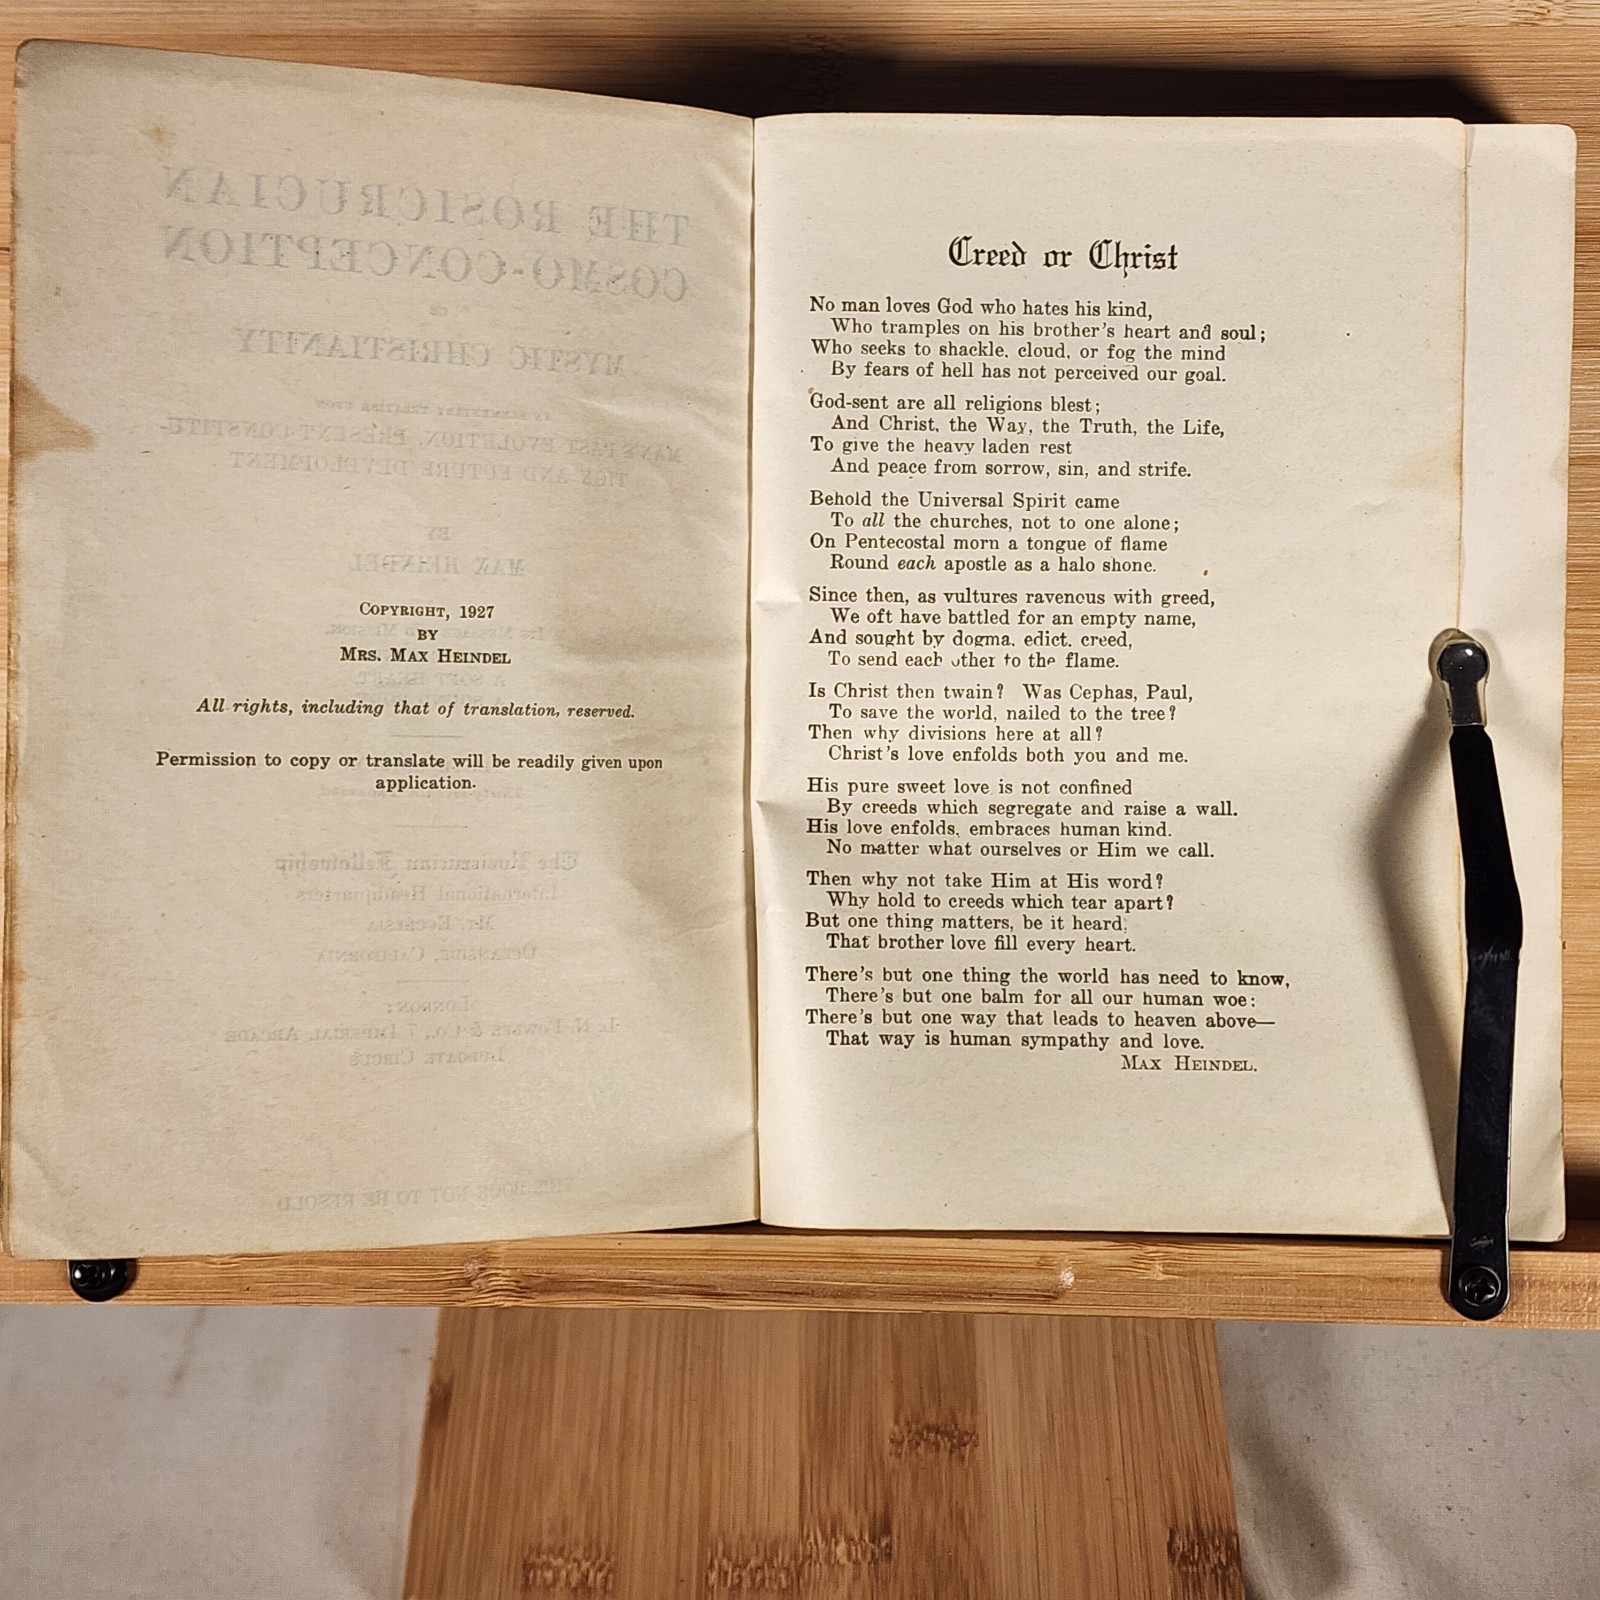 COPYRIGHT, 1927
BY
MRS. MAX HEINDEL
All rights, including that of translation, reserved.
Permission to copy or translate will be readily given upon
application.
Creed or Christ
No man loves God who hates his kind,
Who tramples on his brother's heart and soul;
Who seeks to shackle, cloud, or fog the mind
By fears of hell has not perceived our goal.
God-sent are all religions blest;
And Christ, the Way, the Truth, the Life,
To give the heavy laden rest
And peace from sorrow, sin, and strife.
Behold the Universal Spirit came
To all the churches, not to one alone;
On Pentecostal morn a tongue of flame
Round each apostle as a halo shone.
Since then, as vultures ravenous with greed,
We oft have battled for an empty name,
And sought by dogma, edict, creed,
To send each other to the flame.
Is Christ then twain? Was Cephas, Paul,
To save the world, nailed to the tree?
Then why divisions here at all?
Christ's love enfolds both you and me.
His pure sweet love is not confined
By creeds which segregate and raise a wall.
His love enfolds, embraces human kind.
No matter what ourselves or Him we call.
Then why not take Him at His word?
Why hold to creeds which tear apart?
But one thing matters, be it heard:
That brother love fill every heart.
There's but one thing the world has need to know,
There's but one balm for all our human woe:
There's but one way that leads to heaven above—
That way is human sympathy and love.
MAX HEINDEL.